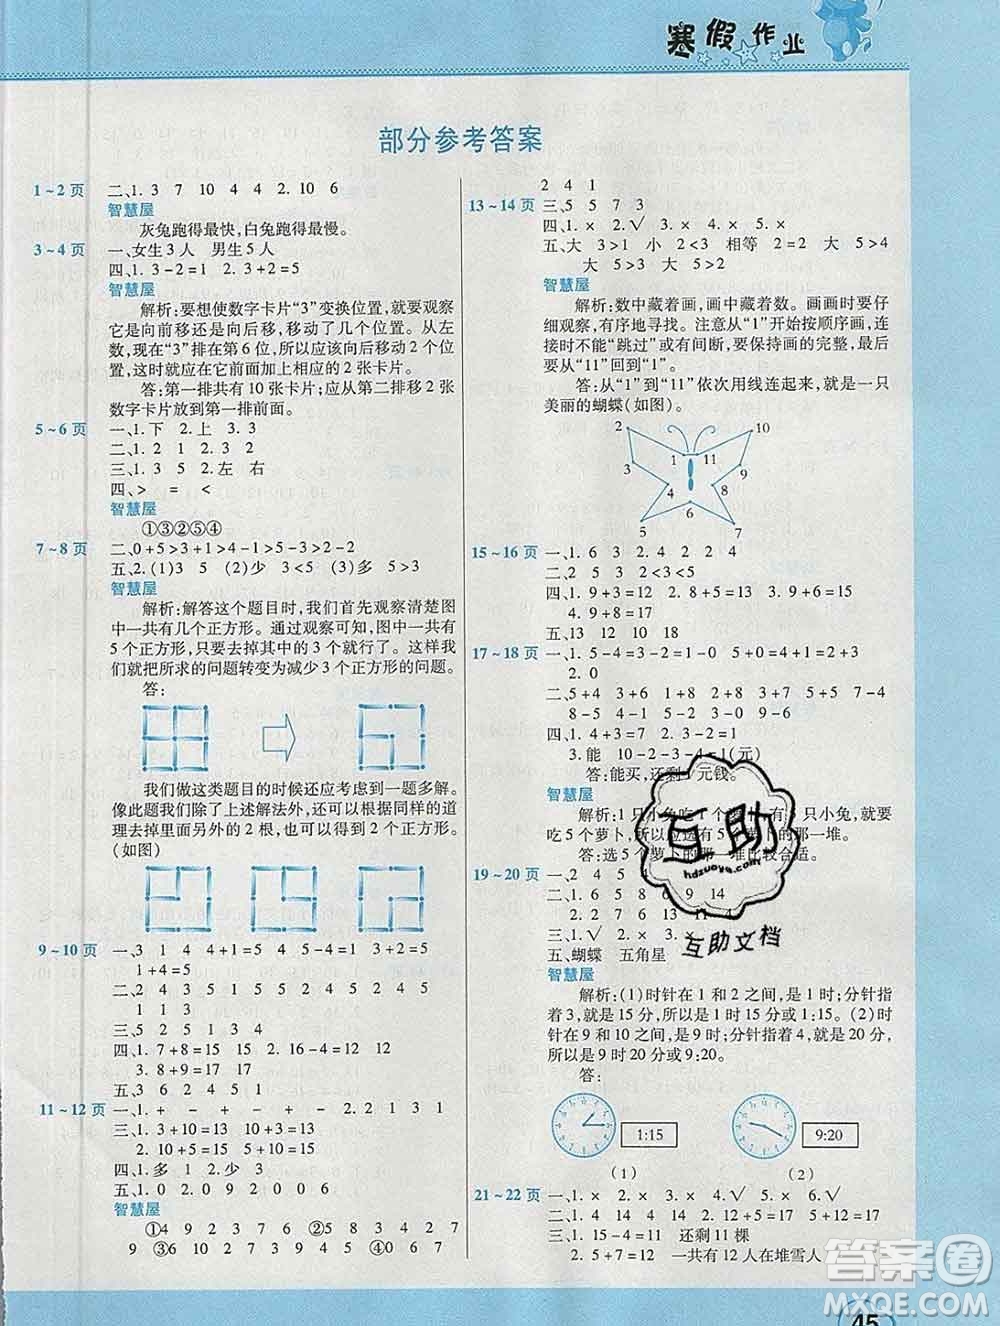 寒假作业
部分参考答案
1~2页 二、1. 3 7 10 4 4 2. 10 6
智慧屋
灰兔跑得最快,白兔跑得最慢。
3~4页 一、女生3人 男生5人
四、1. 3-2=1 2. 3+2=5
智慧屋
解析:要想使数字卡片“3”变换位置,就要观察
它是向前移还是向后移,移动了几个位置。从左
数,现在“3”排在第6位,所以应该向后移动2个位
置,这时就应该在它前面加上相应的2张卡片。
答:第一排共有10张卡片;应从第二排移2张
数字卡片放到第一排前面。
5~6页 一、1. 下 2. 上 3. 3
二、1. 2 1 2. 4
三、1. 3 5 2. 左 右
四、> = <
智慧屋
①③②⑤④
7~8页 二、0+5>3+1>5-1>5-3>2-2
五、2. (1)3 5 (2)少 (3)多 5>3
智慧屋
解析:解答这个题目时,我们首先观察清楚图
中一共有几个正方形。通过观察可知,图中共有
5个正方形,只要去掉其中的3个就行了。这样我
们就把所求的问题转变为减少3个正方形的问题。
答:
我们做这类题目的时候还应考虑到一题多解。
像此题我们除了上述解法外,还可以根据同样的道
理去掉里面另外的2根,也可以得到2个正方形。
(如图)
9~10页 一、3 1 4 4+1=5 5 4 1 3+2=5
1+4=5
二、2 4 3 4 5 1 5 5 2 3 4 5
1 1 3
三、5 2 5 1 3 4
四、1. 7+8=15 15 2. 16-4=12 12
3. 8+9=17 17
五、3 6 2 4 5 1
11~12页 一、1. + - + - + - 2. 2 1 3 1
三、1. 3+10=13 10+3=13
2. 10+5=15 5+10=15
四、1. 多 1 2. 少 3
五、1. 0 9 2 0 2. 0 0 6
智慧屋
①4 9 2 7 2 2 ②5 8 3 4 2 7
9 ③6 2 4 2 7 2 ④0 7 6 2 3
2 4 1
13~14页 三、5 5 7 3
四、1. × 2. √ 3. × 4. × 5. ×
五、大 3>1 小 2<3 相等 2=2 大 5>4
大 5>3 大 5>1
智慧屋
解析:数中藏着画,画中藏着数。画画时要仔
细观察,有序地寻找。注意从“1”开始按顺序画,
连接时不能“跳过”或有间断,要保持画的完整,最
后要从“11”回到“1”。
答:从“1”到“11”依次用线连起来,就是一只
美丽的蝴蝶(如图)。
2 10
1 11
3 9
4 8
6
5 7
15~16页 一、1. 6 3 2. 4 2 2 4
四、1. 9+3=12 2. 9+4=13 3. 9+6=15
4. 9+8=17
五、13 12 10 18
17~18页 一、1. 5-4=3-2 5+0=4+1=2+3
2. 0
二、5+4 9+0 3+4 2+5 7+5 7-4
8-5 4-2 5-3 3-0 9-6
四、1. 4+2=6 2. 3-2=1
3. 能 10-2-3-4=1(元)
答:能买,还剩1元钱。
智慧屋
答:选5个萝卜的那一堆比较合适。
19~20页
五、蝴蝶 五角星
智慧屋
解析:(1)时针在1和2之间,是1时;分针指
着3,就是15分,所以是1时15分或1:15。(2)时
针在9和10之间,是9时;分针指着4,就是20分,
所以是9时20分或9:20。
答:
1:15
9:20
(1) (2)
21~22页 一、1. × 2. × 3. × 4. √ 5. √
二、1. 4 14 4 14 2. √ √ × √
三、1. 15-4=11 还剩11棵
2. 5+7=12 一共有12人在堆雪人
45
互助
hdzuoye.com
互助文档
答案圈
MXQE.COM